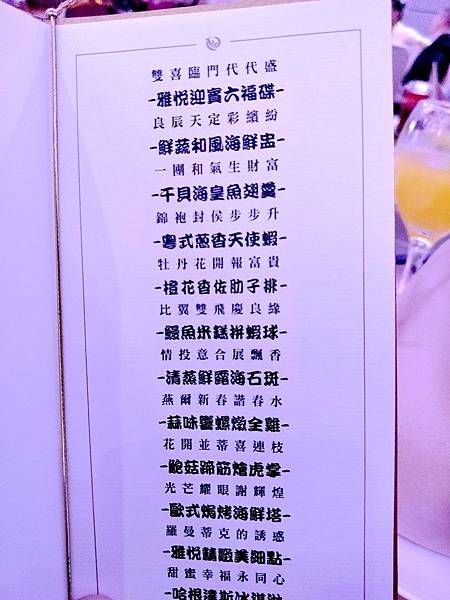 雙喜臨門代代盛
-雅悅迎賓六福碟-
良辰天定彩繽紛
-鮮蔬和風海鮮盅-
一團和氣生財富
-干貝海皇魚翅羹-
錦袍封侯步步升
-粵式蔥香天使蝦-
牡丹花開報富貴
-橙花香佐肋子排-
比翼雙飛慶良緣
-鰻魚米糕拼蝦球-
情投意合展飄香
-清蒸鮮露海石斑-
燕爾新春譜春水
-蒜味響螺燉全雞-
花開並蒂喜連枝
-鮑菇蹄筋燴虎掌-
光芒耀眼謝輝煌
-歐式焗烤海鮮塔-
羅曼蒂克的誘惑
-雅悅精緻美細點-
甜蜜幸福永同心
-哈根達斯冰淇淋-